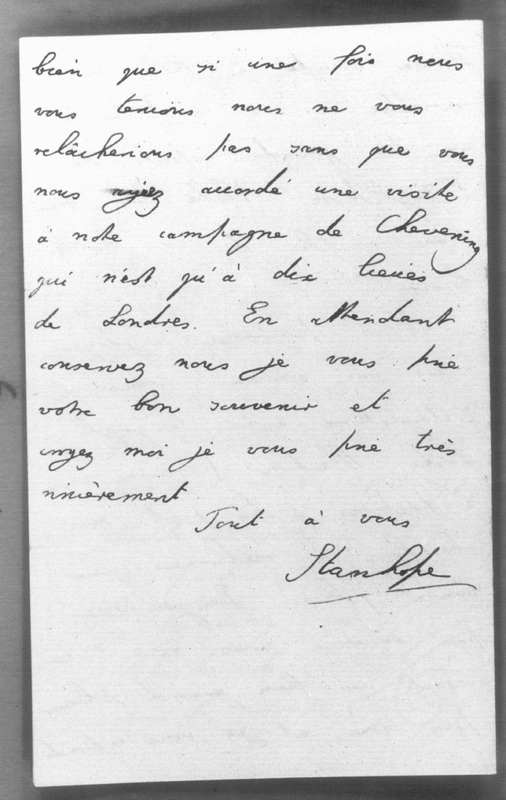 bien que si une fois nous
vous tenions nous ne vous
relâcherions pas sans que vous
nous ayiez accordé une visite
à notre campagne de Chevening
qui n'est qu'à dix lieues
de Londres. En attendant
conservez nous je vous prie
votre bon souvenir et
croyez moi je vous prie très
sincèrement
Tout à vous
Stanhope